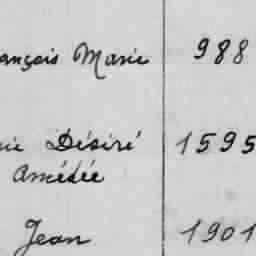 ançois Marie 988
ie Désiré 1595
Amédée
Jean 1901